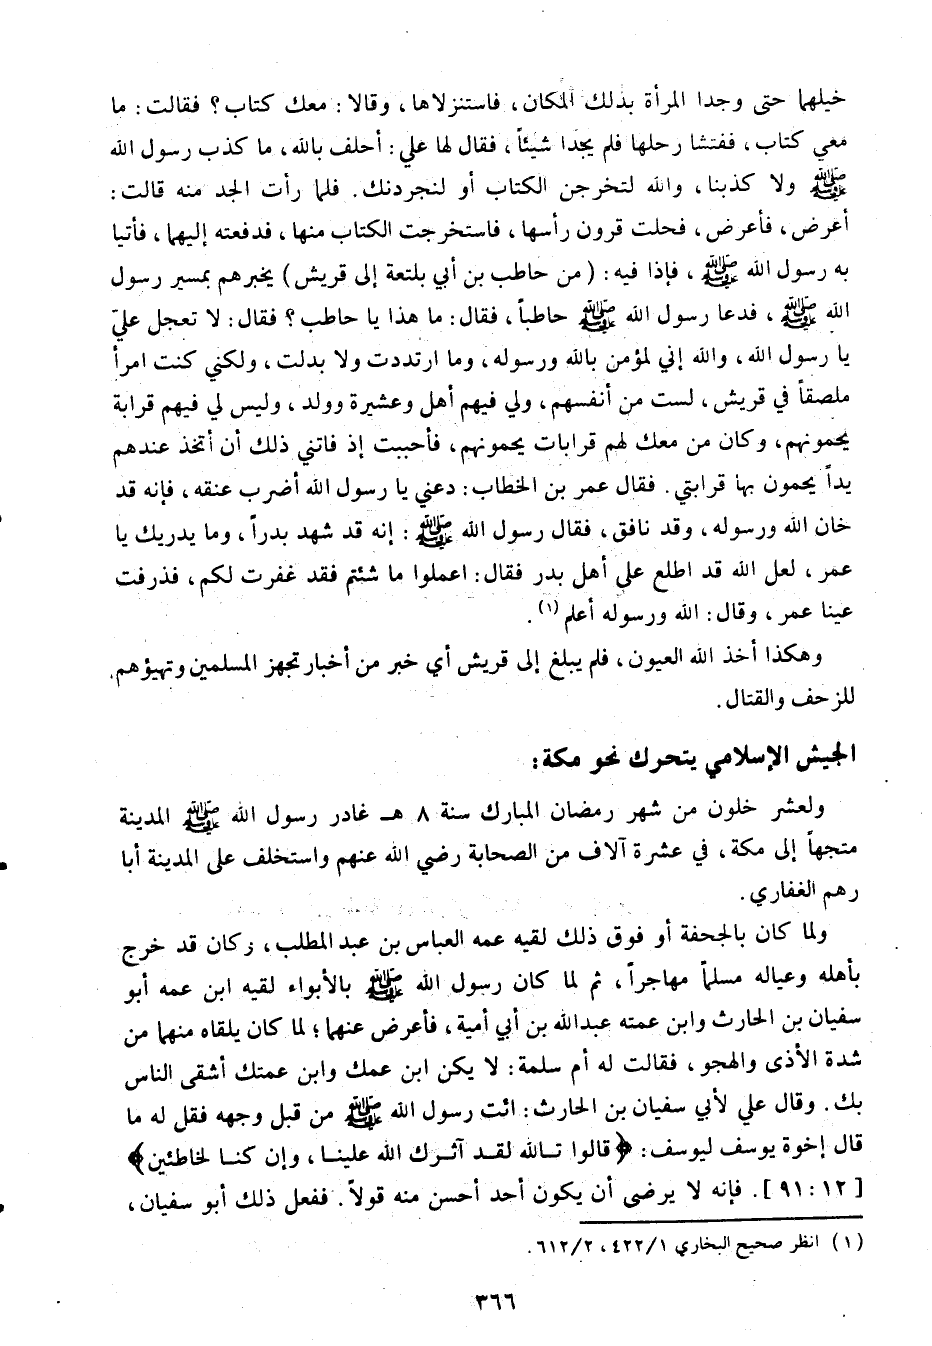 خيلهما حتى وجدا المرأة بذلك المكان، فاستنزلاها، وقالا: معك كتاب؟ فقالت: ما
معي كتاب، ففتشا رحلها فلم يجدا شيئاً، فقال لها علي: أحلف بالله، ما كذب رسول الله
ﷺ ولا كذبنا، والله لتخرجن الكتاب أو لنجردنك. فلما رأت الجد منه قالت:
أعرض، فأعرض، فحلت قرون رأسها، فاستخرجت الكتاب منها، فدفعته إليهما، فأتيا
به رسول الله ﷺ، فإذا فيه: (من حاطب بن أبي بلتعة إلى قريش) يخبرهم بمسير رسول
الله ﷺ، فدعا رسول الله ﷺ حاطباً، فقال: ما هذا يا حاطب؟ فقال: لا تعجل عليّ
يا رسول الله، والله إني لمؤمن بالله ورسوله، وما ارتددت ولا بدلت، ولكني كنت امرأ
ملصقاً في قريش، لست من أنفسهم، ولي فيهم أهل وعشيرة وولد، وليس لي فيهم قرابة
يحمونهم، وكان من معك لهم قرابات يحمونهم، فأحببت إذ فاتني ذلك أن أتخذ عندهم
يداً يحمون بها قرابتي. فقال عمر بن الخطاب: دعني يا رسول الله أضرب عنقه، فإنه قد
خان الله ورسوله، وقد نافق، فقال رسول الله ﷺ: إنه قد شهد بدراً، وما يدريك يا
عمر، لعل الله قد اطلع على أهل بدر فقال: اعملوا ما شئتم فقد غفرت لكم، فذرفت
عينا عمر، وقال: الله ورسوله أعلم(١).
وهكذا أخذ الله العيون، فلم يبلغ إلى قريش أي خبر من أخبار تجهز المسلمين وتهيؤهم
للزحف والقتال.
الجيش الإسلامي يتحرك نحو مكة:
ولعشر خلون من شهر رمضان المبارك سنة ٨ هـ غادر رسول الله ﷺ المدينة
متجهاً إلى مكة، في عشرة آلاف من الصحابة رضي الله عنهم واستخلف على المدينة أبا
رهم الغفاري.
ولما كان بالجحفة أو فوق ذلك لقيه عمه العباس بن عبد المطلب، وكان قد خرج
بأهله وعياله مسلماً مهاجراً، ثم لما كان رسول الله ﷺ بالأبواء لقيه ابن عمه أبو
سفيان بن الحارث وابن عمته عبدالله بن أبي أمية، فأعرض عنهما؛ لما كان يلقاه منهما من
شدة الأذى والهجو، فقالت له أم سلمة: لا يكن ابن عمك وابن عمتك أشقى الناس
بك. وقال علي لأبي سفيان بن الحارث: ائت رسول الله ﷺ من قبل وجهه فقل له ما
قال إخوة يوسف ليوسف: ﴿قالوا تالله لقد آثرك الله علينا، وإن كنا لخاطئين﴾
[٩١:١٢]. فإنه لا يرضى أن يكون أحد أحسن منه قولاً. ففعل ذلك أبو سفيان،
(١) انظر صحيح البخاري ٤٢٢/١، ٦١٢/٢.
٣٦٦